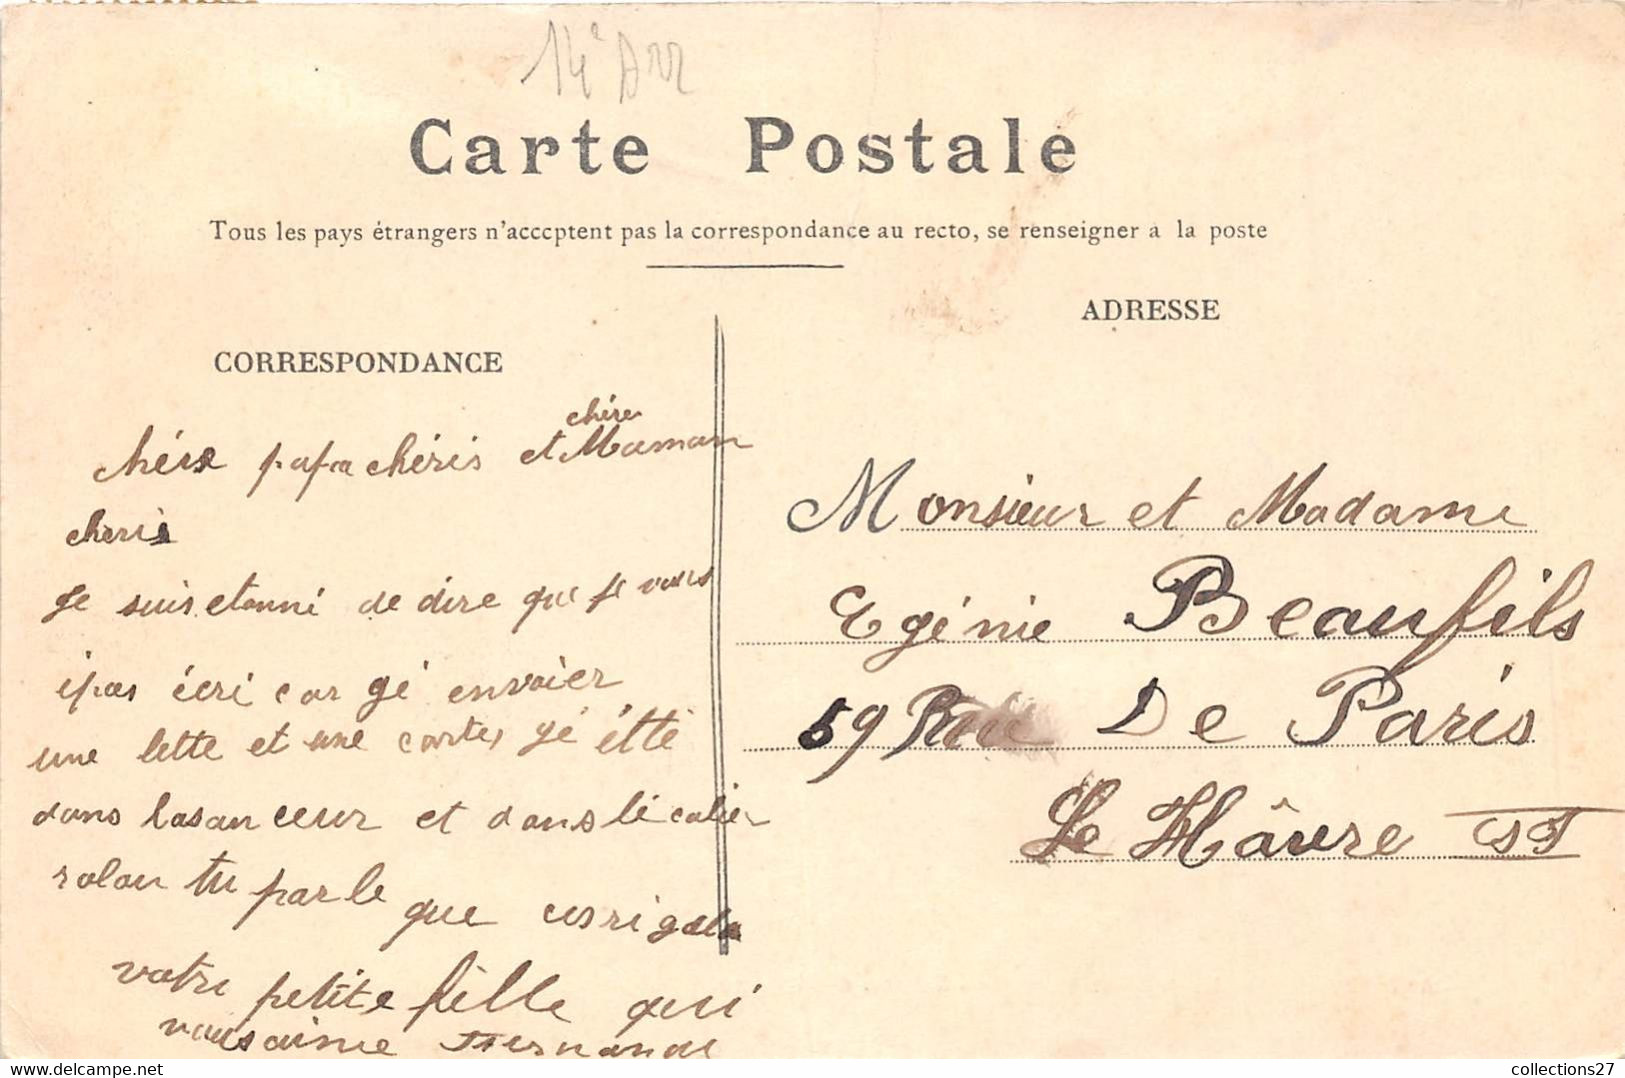 14e Arr
Carte Postale
Tous les pays étrangers n'acceptent pas la correspondance au recto, se renseigner à la poste
ADRESSE
CORRESPONDANCE
chère
papa chéris et Maman
cheris
Je suis etonné de dire que je vous
ipas écri car gé envoier
une lette et une carte, gé étté
dans lasanceur et dans lé calier
rolan tu parle que
votre petite fille qui
vousaime Fernande
Monsieur et Madame
Egénie Beaufils
59 Rue De Paris
Le Hâvre
collections27